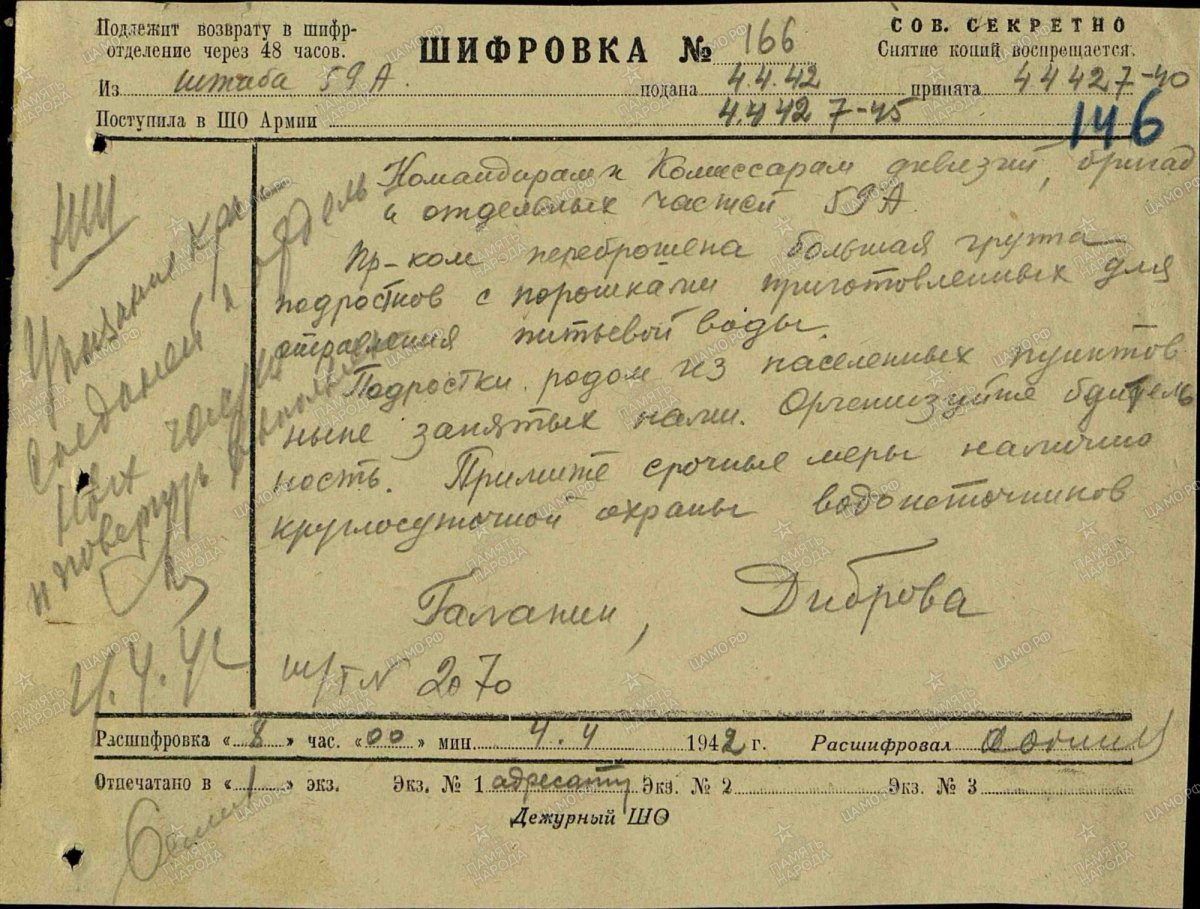 Подлежит возврату в шифр-
отделение через 48 часов.
ШИФРОВКА № 166
СОВ. СЕКРЕТНО
Снятие копий воспрещается.
Из штаба 59 А подана 4.4.42 принята 4 4 42 7-40
Поступила в ШО Армии 4.4.42 7-45
146
Командирам и Комиссарам дивизий, бригад
и отдельных частей 59 А
Пр-ком переброшена большая группа
подростков с порошками приготовленных для
отравления питьевой воды.
Подростки родом из населенных пунктов
ныне занятых нами. Организуйте бдитель
ность. Примите срочные меры налично
круглосуточной охраны водоисточников
Галанин, Диброва
ш/т № 2070
НШ
Указание
и
4.4.42
Расшифровка «8» час. «00» мин. 4.4 1942 г. Расшифровал
Отпечатано в «1» экз. Экз. № 1 адресату Экз. № 2 Экз. № 3
Дежурный ШО